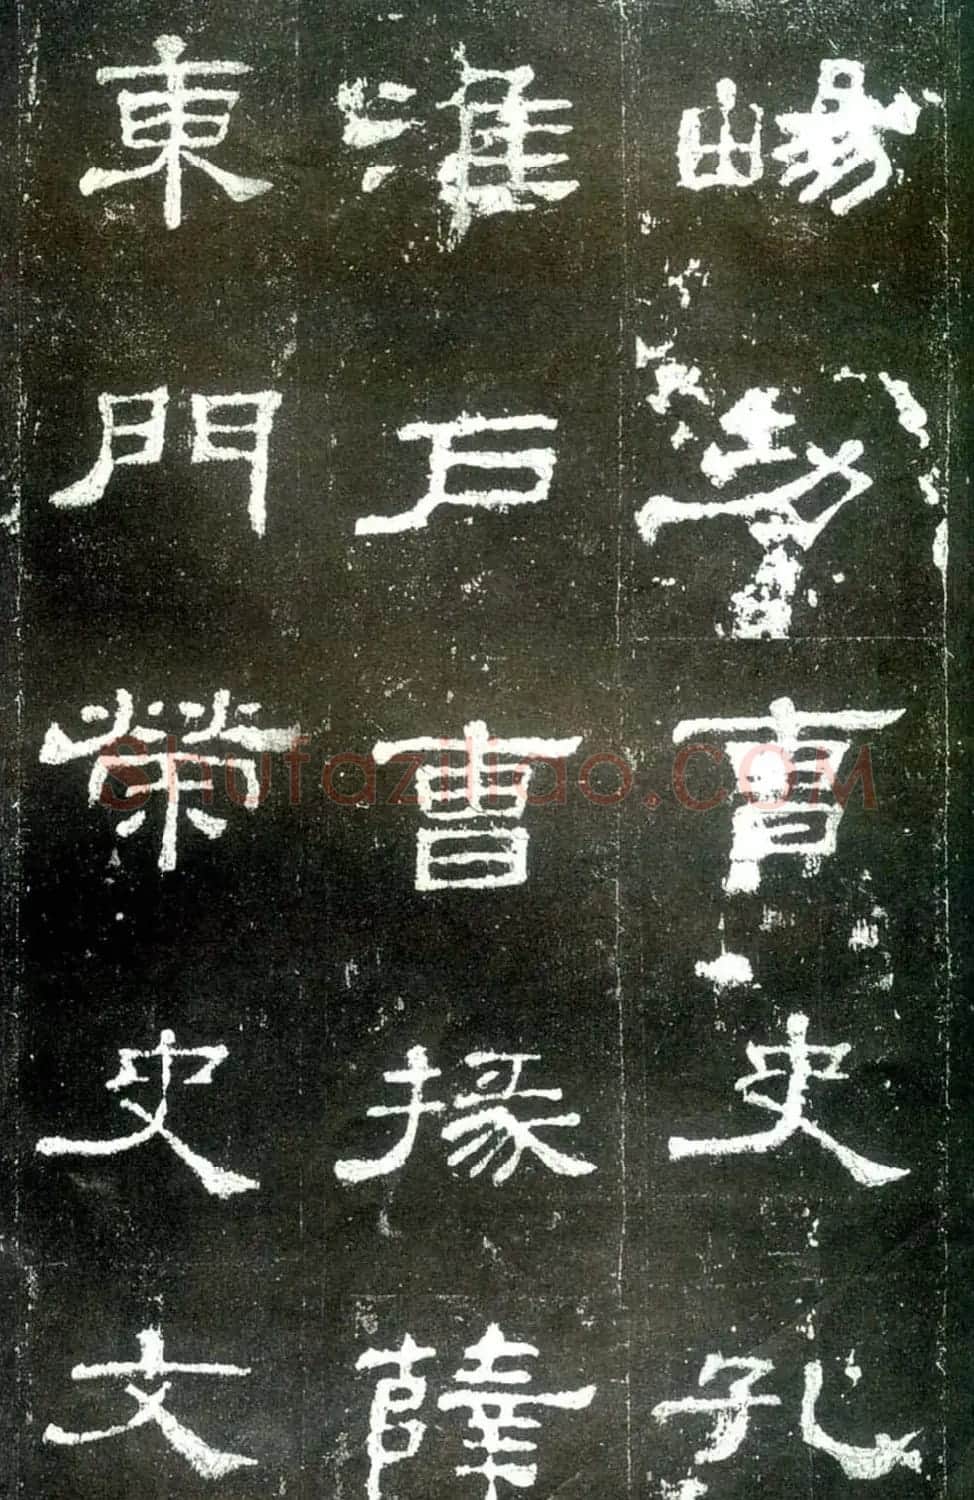 暢功曹史孔
淮戶曹掾薛
東門榮史文
Shufaziliao.COM